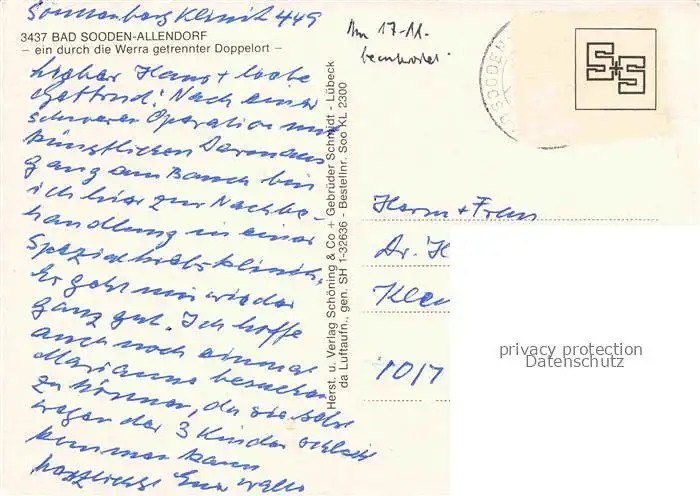 Sonnenberg Klinik 449
3437 BAD SOODEN-ALLENDORF
– ein durch die Werra getrennter Doppelort –
Lieber Hans + liebe
Gertrud! Nach einer
schweren Operation mit
künstlichen Darmaus
gang am Bauch bin
ich hier zur Nachbe-
handlung in einer
Spezialkrebsklinik.
Es geht mir wieder
ganz gut. Ich hoffe
auch noch einmal
Marianne besuchen
zu können, da sie sehr
wegen der 3 Kinder schlecht
kommen kann
herzlichst Eure
Herst. u. Verlag Schöning & Co + Gebrüder Schmidt - Lübeck
da Luftaufn., gen. SH 1-32636 - Bestellnr. Soo KL 2300
Am 17-11.
beantwortet.
SOODEN
S+S
Herrn + Frau
Dr. H
Klei
1017
privacy protection
Datenschutz